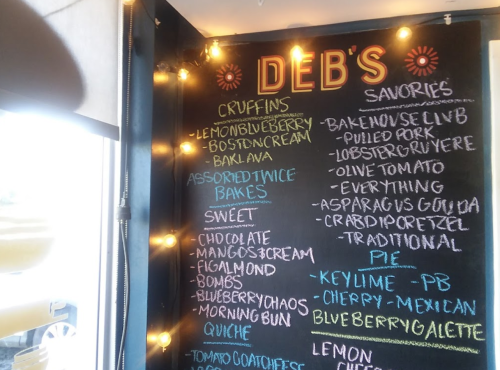 DEB'S
CRUFFINS
-LEMONBLUEBERRY
-BOSTONCREAM
-BAKLAVA
ASSORTED TWICE
BAKES
SWEET
-CHOCOLATE
-MANGOS$CREAM
-FIGALMOND
BOMBS
-BLUEBERRYCHAOS
-MORNINGBUN
QUICHE
-TOMATOGOATCHEESE
SAVORIES
-BAKEHOUSE CLUB
-PULLED PORK
-LOBSTERGRUYERE
-OLIVETOMATO
-EVERYTHING
-ASPARAGUS GOUDA
-CRABDIPPRETZEL
-TRADITIONAL
PIE
-KEYLIME -PB
-CHERRY -MEXICAN
BLUEBERRYGALETTE
LEMON